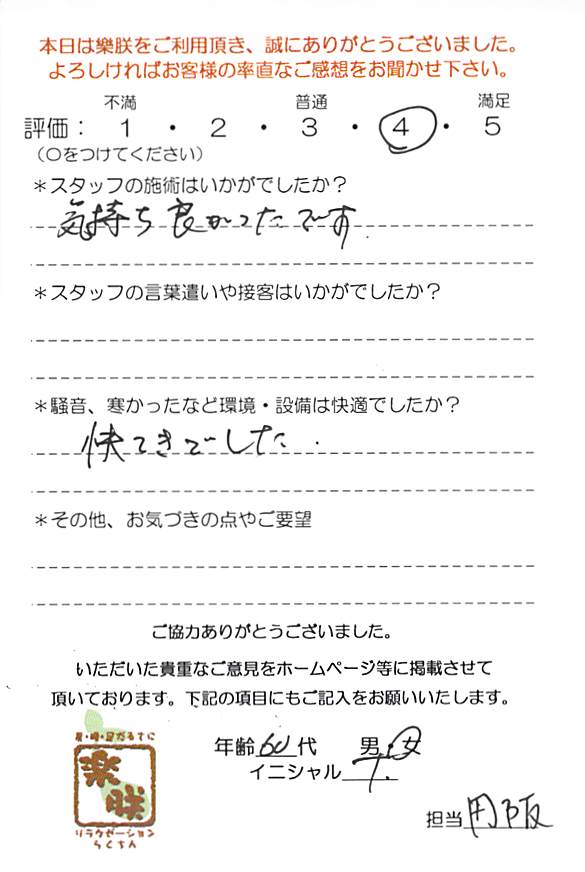 本日は樂朕をご利用頂き、誠にありがとうございました。
よろしければお客様の率直なご感想をお聞かせ下さい。
不満 普通 満足
評価： 1 ・ 2 ・ 3 ・ 4 ・ 5
（○をつけてください）
＊スタッフの施術はいかがでしたか？
気持ち良かったです.
＊スタッフの言葉遣いや接客はいかがでしたか？
＊騒音、寒かったなど環境・設備は快適でしたか？
快てきでーした.
＊その他、お気づきの点やご要望
ご協力ありがとうございました。
いただいた貴重なご意見をホームページ等に掲載させて
頂いております。下記の項目にもご記入をお願いいたします。
年齢60代 男・女
イニシャル T.
楽朕
リラクゼーション
らくちん
担当